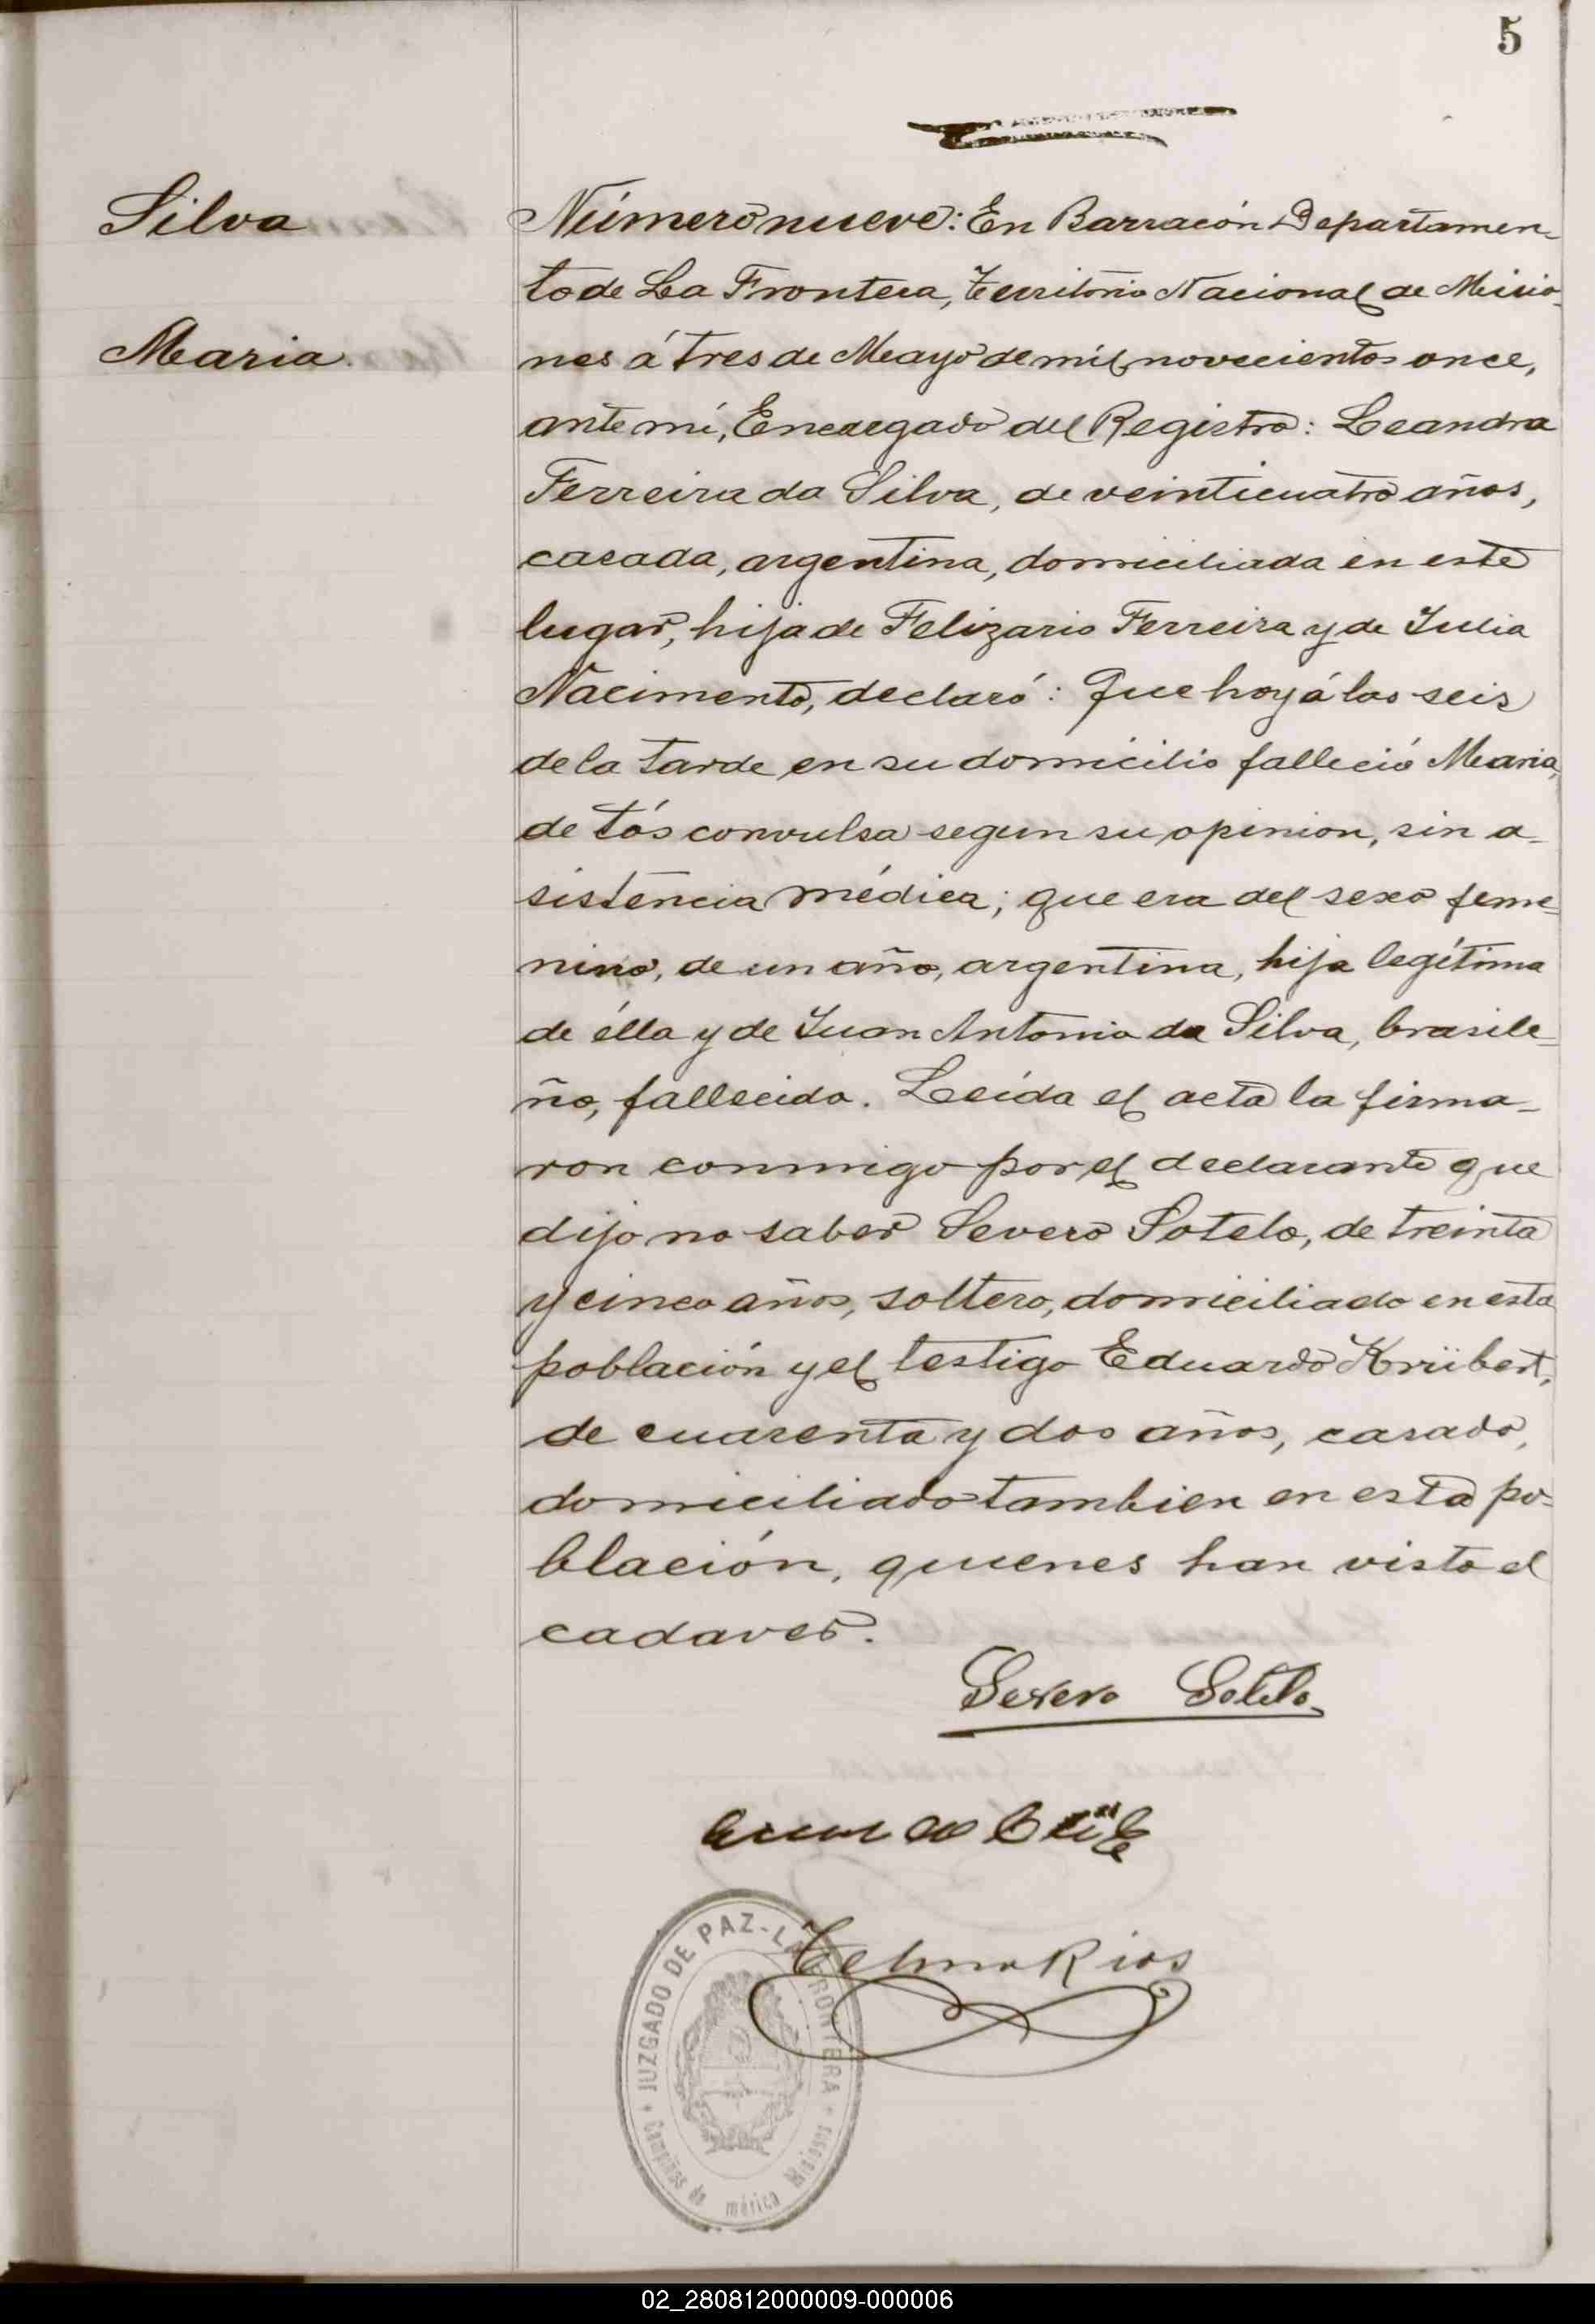 5
Silva
Maria.
Número nueve: En Barracón Departamen-
to de La Frontera, Territorio Nacional de Misio-
nes á tres de Mayo de mil novecientos once,
ante mí, Encargado del Registro: Leandra
Ferreira da Silva, de veinticuatro años,
casada, argentina, domiciliada en este
lugar, hija de Felizario Ferreira y de Julia
Nacimento, declaró: Que hoy á las seis
de la tarde en su domicilio falleció Maria,
de tós convulsa segun su opinion, sin a-
sistencia médica; que era del sexo feme-
nino, de un año, argentina, hija legítima
de élla y de Juan Antonio da Silva, brasile-
ño, fallecido. Leída el acta la firma-
ron conmigo por el declarante que
dijo no saber Severo Sotelo, de treinta
y cinco años, soltero, domiciliado en esta
población y el testigo Eduardo Krübert,
de cuarenta y dos años, casado,
domiciliado tambien en esta po-
blación, quienes han visto el
cadaver.
Severo Sotelo
Telmo Rios
JUZGADO DE PAZ-LA FRONTERA
Campiñas de mérica Misiones
02_280812000009-000006